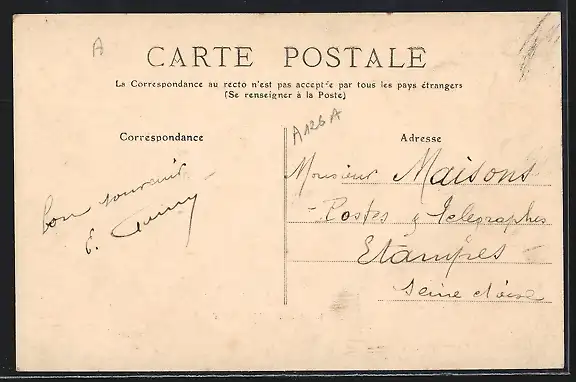 A
CARTE POSTALE
La Correspondance au recto n'est pas acceptée par tous les pays étrangers
(Se renseigner à la Poste)
A126A
Correspondance
Adresse
bon souvenir
E.
Monsieur Maisons
Postes & Telegraphes
Etampes
Seine et oise